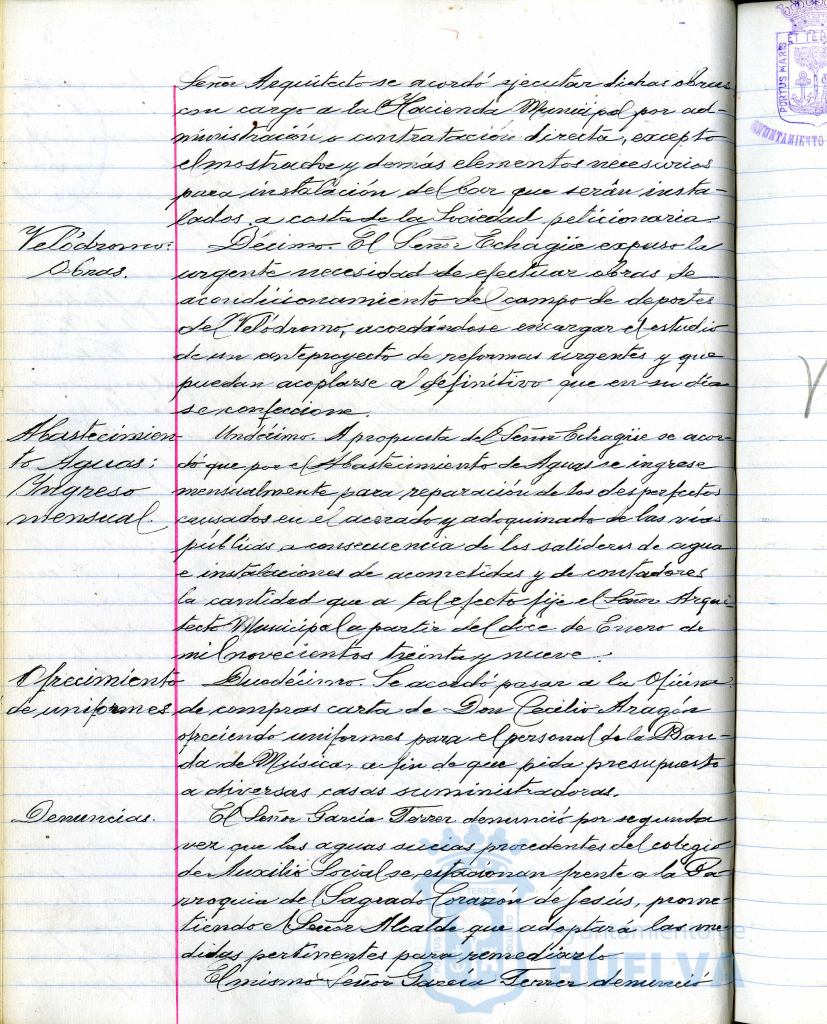 Señor Arquitecto se acordó ejecutar dichas obras
con cargo a la Hacienda Municipal por ad-
ministración o contratación directa, excepto
el mostrador y demás elementos necesarios
para instalación del bar que serán insta-
lados a costa de la Sociedad peticionaria.
Velódromo:
Obras.
Décimo. El Señor Echagüe expuso la
urgente necesidad de efectuar obras de
acondicionamiento del campo de deportes
del Velódromo, acordándose encargar el estudio
de un anteproyecto de reformas urgentes y que
puedan acoplarse al definitivo que en su día
se confeccione.
Abastecimien-
to Aguas:
Ingreso
mensual.
Undécimo. A propuesta del Señor Echagüe se acor-
dó que por el Abastecimiento de Aguas se ingrese
mensualmente para reparación de los desperfectos
causados en el acerado y adoquinado de las vías
públicas a consecuencia de los salideros de agua
e instalaciones de acometidas y de contadores
la cantidad que a tal efecto fije el Señor Arqui-
tecto Municipal a partir del doce de Enero de
mil novecientos treinta y nueve.
Ofrecimiento
de uniformes
Duodécimo. Se acordó pasar a la Oficina
de compras carta de Don Cecilio Aragón
ofreciendo uniformes para el personal de la Ban-
da de Música, a fin de que pida presupuesto
a diversas casas suministradoras.
Denuncias.
El Señor García Ferrer denunció por segunda
vez que las aguas sucias procedentes del colegio
de Auxilio Social se estacionan frente a la Pa-
rroquia del Sagrado Corazón de Jesús, prome-
tiendo el Señor Alcalde que adoptará las me-
didas pertinentes para remediarlo
El mismo Señor García Ferrer denunció
PORTUS MARIS
ET TER
AYUNTAMIENTO
Ayuntamiento de
HUELVA